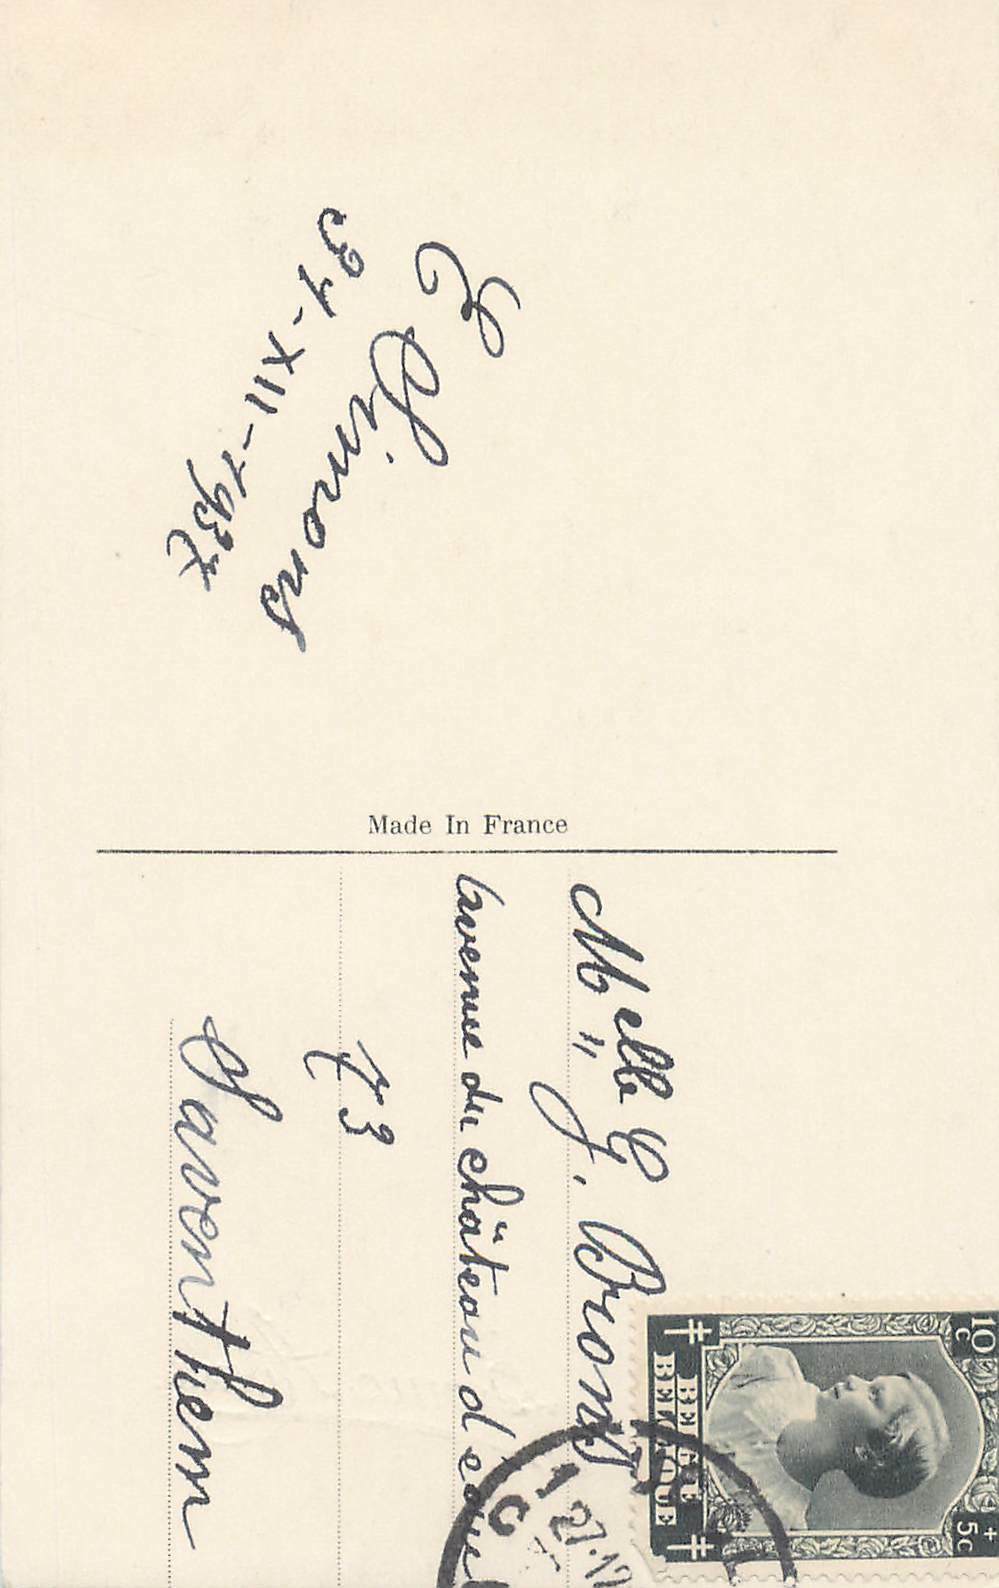 E Simons
31-XII-1937
Made In France
Melle G. Brons
Avenue du château d'eau
73
Saventhem
10c
+5c
BELGIE
BELGIQUE
1
27.12